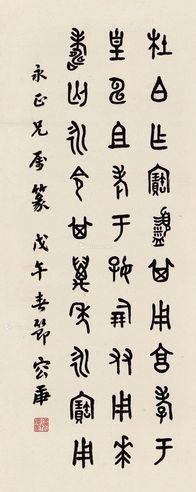 杜白乍寶盨其用亯孝于
皇申且考于好朋友用𠦪
壽匄永令其萬年永寶用
永正兄屬篆 戊午春節 容庚